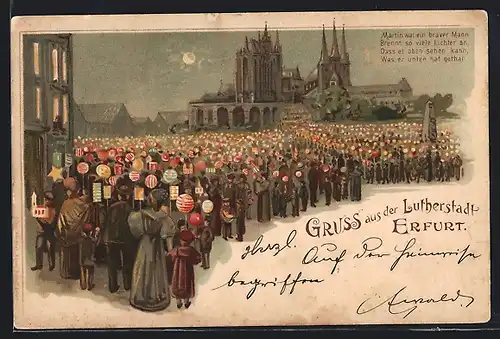 Martin war ein braver Mann
Brennt so viele Lichter an,
Dass er oben sehen kann,
Was er unten hat gethan.
GRUSS aus der Lutherstadt
ERFURT.
Herzl.
Auf der Heimreise
begriffen
Ewald.